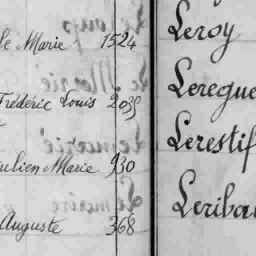 le Marie 1524
Frédéric Louis 2035
ulien Marie 930
Auguste 368
Leroy
Leregue
Lerestif
Leribau